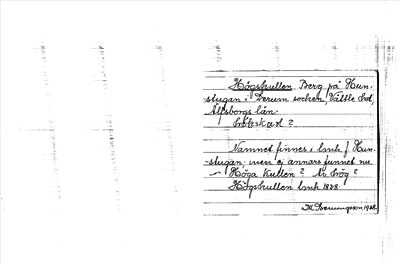 Högskullen. Berg på Hun-
stugan, Lerum socken, Vättle hd,
Älfsborgs län.
Namnet finnes i lmh f Hun-
stugan, men ej annars funnet nu
Höga Kullen? hög?
Högskullen lmh 1828.
M. Svenungsson, 1928.